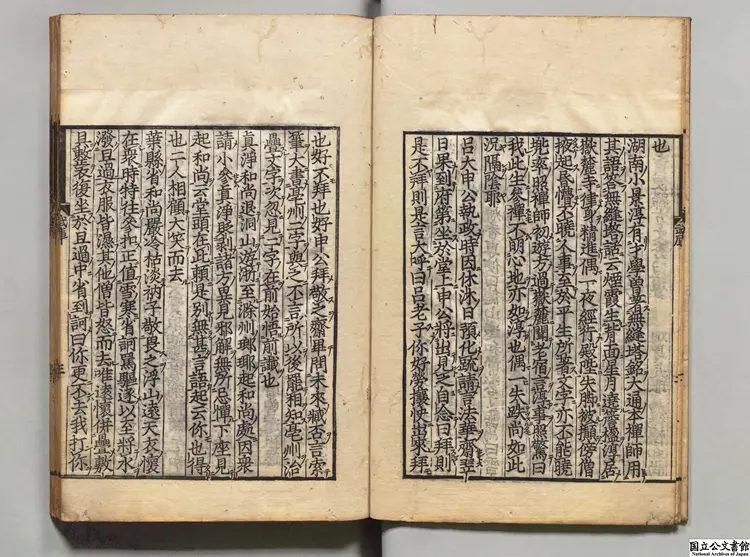 也
湖南小景淳有才學曾著無縫塔銘大通本禪師用
其語答無縫塔話云煙霞生背面星月遶簷楹淳居
嶽麓律身精進偶一夜經行殿陛失脚被攧傍僧
掖起昏懵不曉人事至於平生所著文字亦不能曉
兠率照禪師初遊方過嶽麓聞老宿言淳事照驚曰
我此生參禪不明心地亦如淳也偶一失跌尚如此
況隔陰耶
呂大申公執政時因休沐日預化疏請言法華齋翌
日果到府第坐於堂上申公將出見之自念曰拜則
是不拜則是言大呼曰呂老子你好勞攘快出來拜
也好不拜也好申公拜敬之齋畢問未來臧否言索
筆大書亳州二字與之不言所以後罷相知亳州治
疊文字次忽見二字在前始悟前讖也
真淨和尚退洞山遊浙至滁州瑯瑘起和尚處因衆
請小參真淨貶剥諸方異見邪解無所忌憚下座見
起和尚云堂頭在此賴是別無甚言語起云你也得
也二人相顧大笑而去
葉縣省和尚嚴冷枯淡衲子敬畏之浮山遠天衣懷
在衆時特往參扣正值雪寒省訶罵驅逐以至將水
潑旦過衣服皆濕其他僧皆怒而去唯遠懷併疊敷
具整衣復坐於旦過中省到訶曰你更不去我打你
国立公文書館
National Archives of Japan